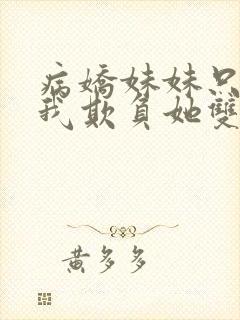 病嬌妹妹只
我欺負她雙
黃多多